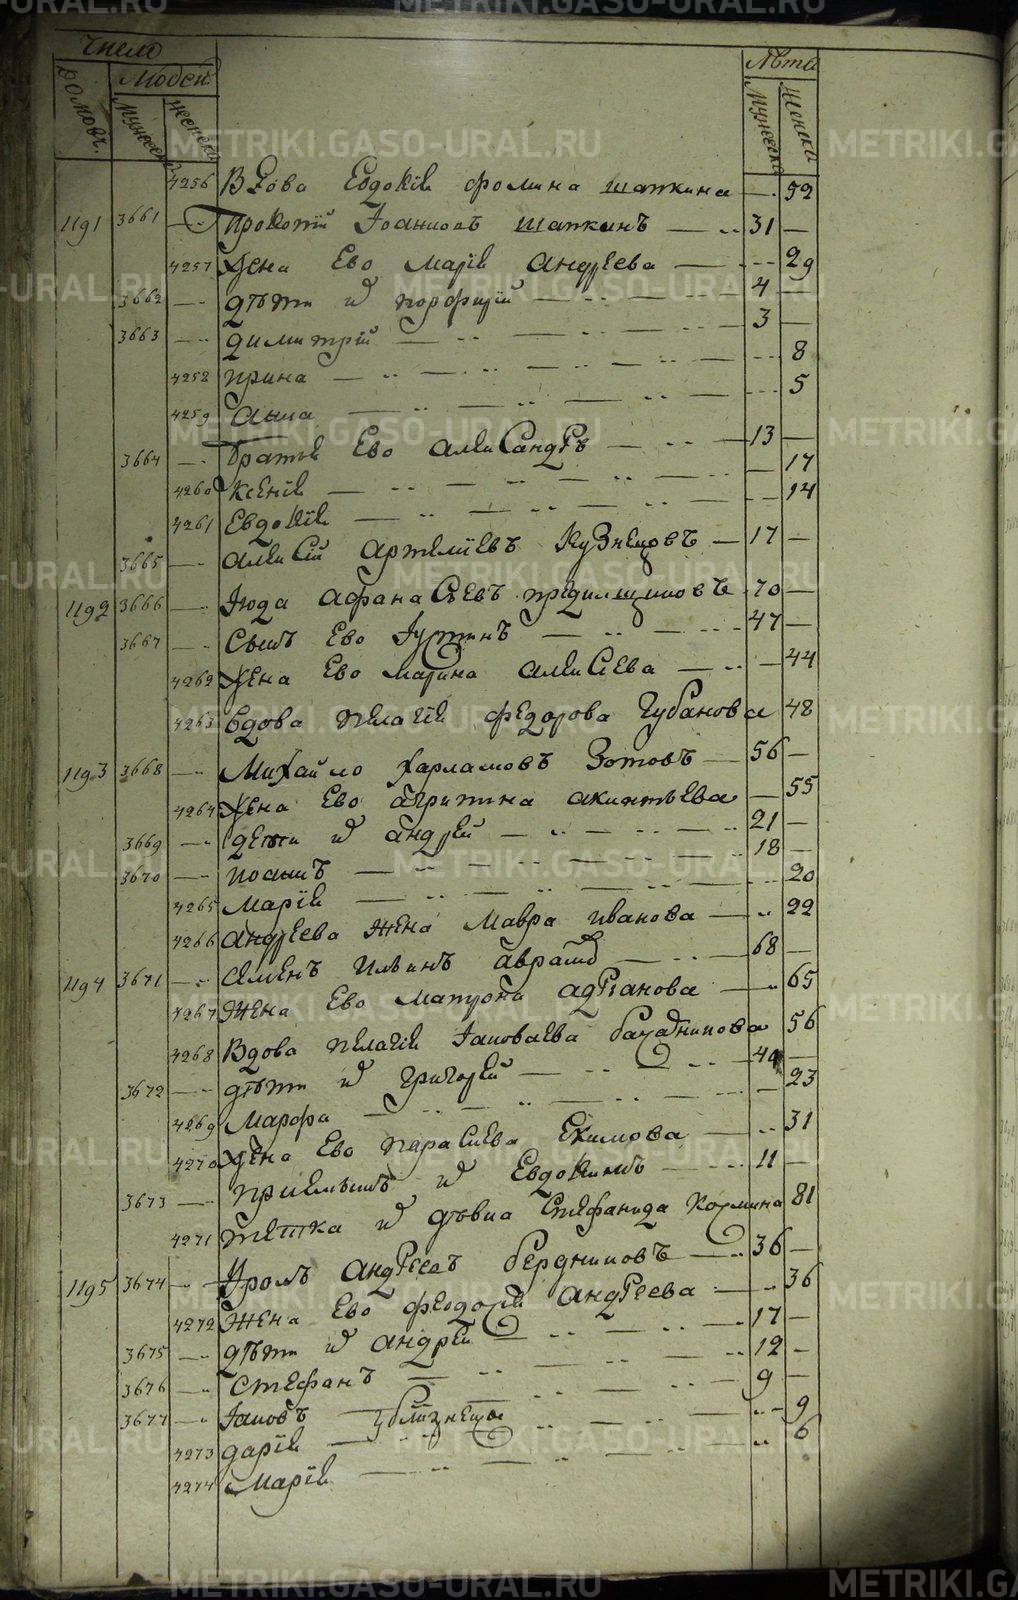 Число
Людей
Лѣта
домовъ.
мужеска
женска
мужеска
женска
4256 Вдова Евдокія фомина шапкина — 52
1191 3661 — Прокопій Іоанновъ шапкинъ — 31 —
4257 Жена Ево Марія андреева — 29
3662 — дѣти ихъ порфирій — 4 —
3663 — димитрій — 3 —
4258 ирина — 8
4259 анна — 5
3664 — братья Ево александръ — 13 —
4260 ксенія — 17
4261 Евдокія — 14
3665 — алексій артемиевъ Кузнецовъ — 17 —
1192 3666 — Іюда афанасьевъ 70 —
3667 — сынъ Ево Іустинъ — 47 —
4262 Жена Ево марина алексіева — 44
4263 вдова пелагія федорова Губанова 48
1193 3668 — Михайло харламовъ Зотовъ — 56 —
4264 Жена Ево агрипина акинтьева — 55
3669 — дети ихъ андрей — 21 —
3670 — иоаннъ — 18 —
4265 Марія — 20
4266 андреева жена Мавра иванова — 22
1194 3671 — семенъ Ильинъ 68 —
4267 Жена Ево матрона адріанова — 65
4268 Вдова пелагія Іаковлева 56
3672 — дѣти ихъ григорей — 44 —
4269 Марфа — 23
4270 Жена Ево параскева Екимова — 31
3673 — приемышъ ихъ Евдокимъ — 11 —
4271 тетка ихъ девка Стефанида Козмина 81
1195 3674 — андреевъ бердниковъ — 36 —
4272 Жена Ево феодора андреева — 36
3675 — дѣти ихъ андрей — 17 —
3676 — стефанъ — 12 —
3677 — Іаковъ близнецы 9 —
4273 дарія — 9
4274 Марія — 6
METRIKI.GASO-URAL.RU